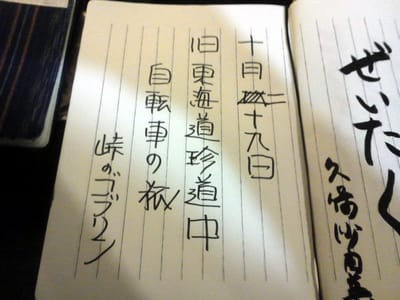 十月二十九日
旧東海道珍道中
自転車の旅
峠のゴブリン
ぜいたく